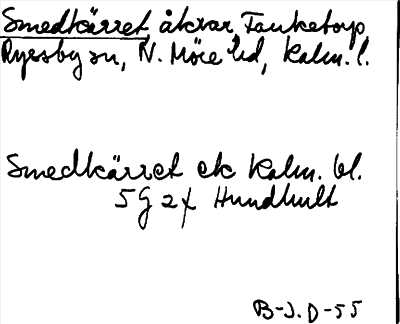 Smedkärret, åkrar, Tanketorp
Ryssby sn, N. Möre hd, Kalm. l.
Smedkärret ek Kalm. bl.
5 G 2 f Hundhult
B-J. D-55